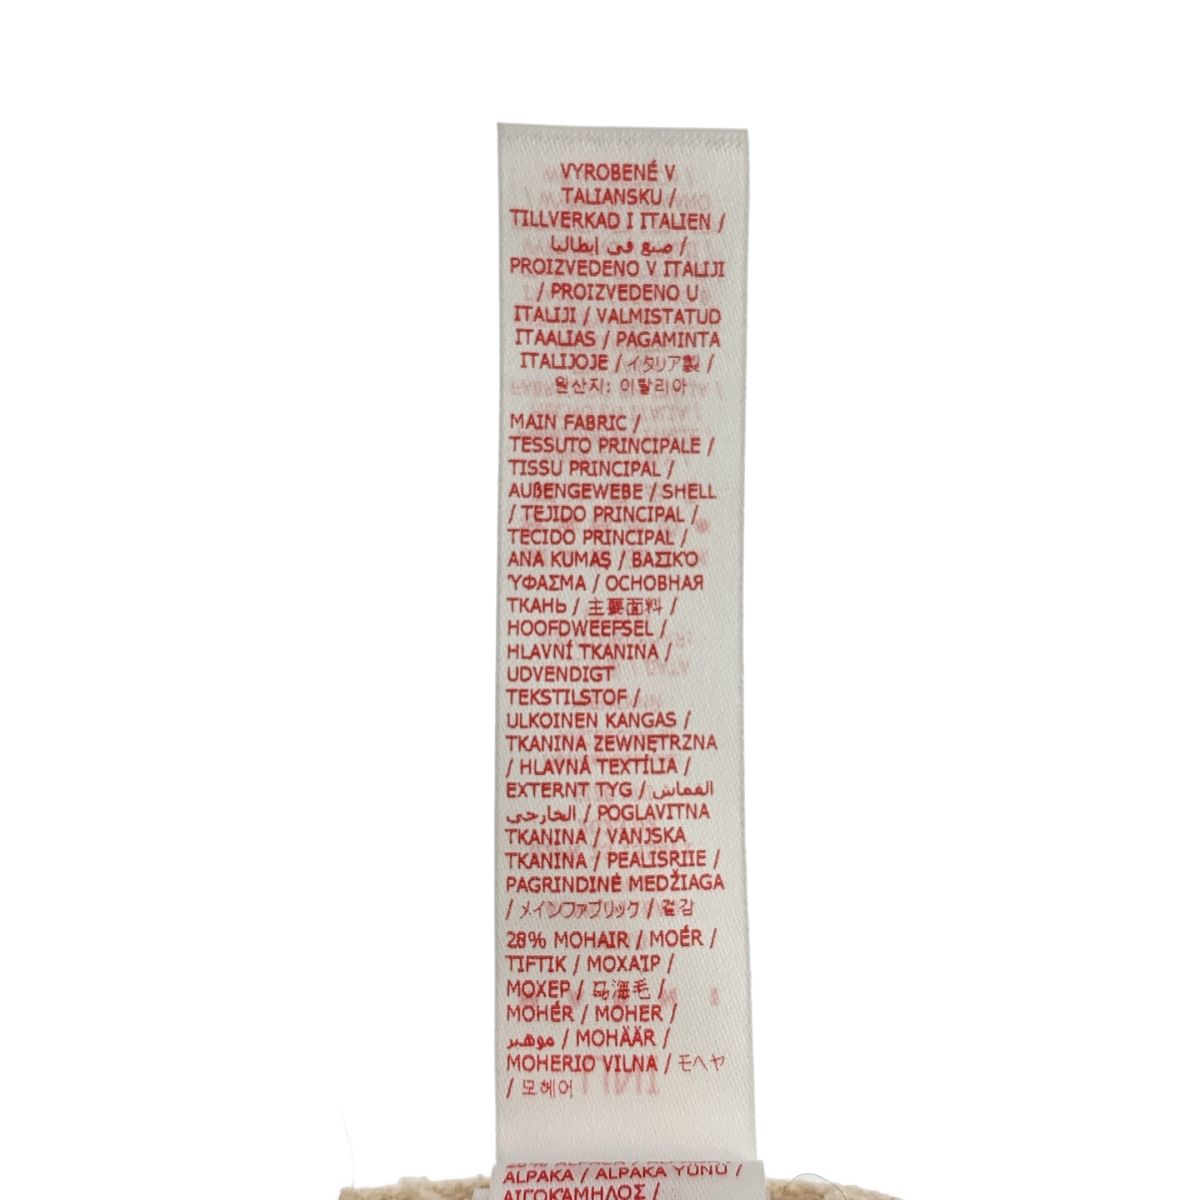 VYROBENÉ V
TALIANSKU /
TILLVERKAD I ITALIEN /
صنع في إيطاليا /
PROIZVEDENO V ITALIJI
/ PROIZVEDENO U
ITALIJI / VALMISTATUD
ITAALIAS / PAGAMINTA
ITALIJOJE / イタリア製 /
원산지: 이탈리아
MAIN FABRIC /
TESSUTO PRINCIPALE /
TISSU PRINCIPAL /
AUßENGEWEBE / SHELL
/ TEJIDO PRINCIPAL /
TECIDO PRINCIPAL /
ANA KUMAŞ / ΒΑΣΙΚΌ
ΎΦΑΣΜΑ / ОСНОВНАЯ
ТКАНЬ / 主要面料 /
HOOFDWEEFSEL /
HLAVNÍ TKANINA /
UDVENDIGT
TEKSTILSTOF /
ULKOINEN KANGAS /
TKANINA ZEWNĘTRZNA
/ HLAVNÁ TEXTÍLIA /
EXTERNT TYG / القماش
الخارجي / POGLAVITNA
TKANINA / VANJSKA
TKANINA / PEALISRIIE /
PAGRINDINĖ MEDŽIAGA
/ メインファブリック / 겉감
28% MOHAIR / MOÉR /
TIFTIK / ΜΟΧΑΊΡ /
МОХЕР / 马海毛 /
MOHÉR / MOHER /
موهير / MOHÄÄR /
MOHERIO VILNA / モヘヤ
/ 모헤어
ALPAKA / ALPAKA YÜNÜ /
ΑΙΓΟΚΆΜΗΛΟΣ /